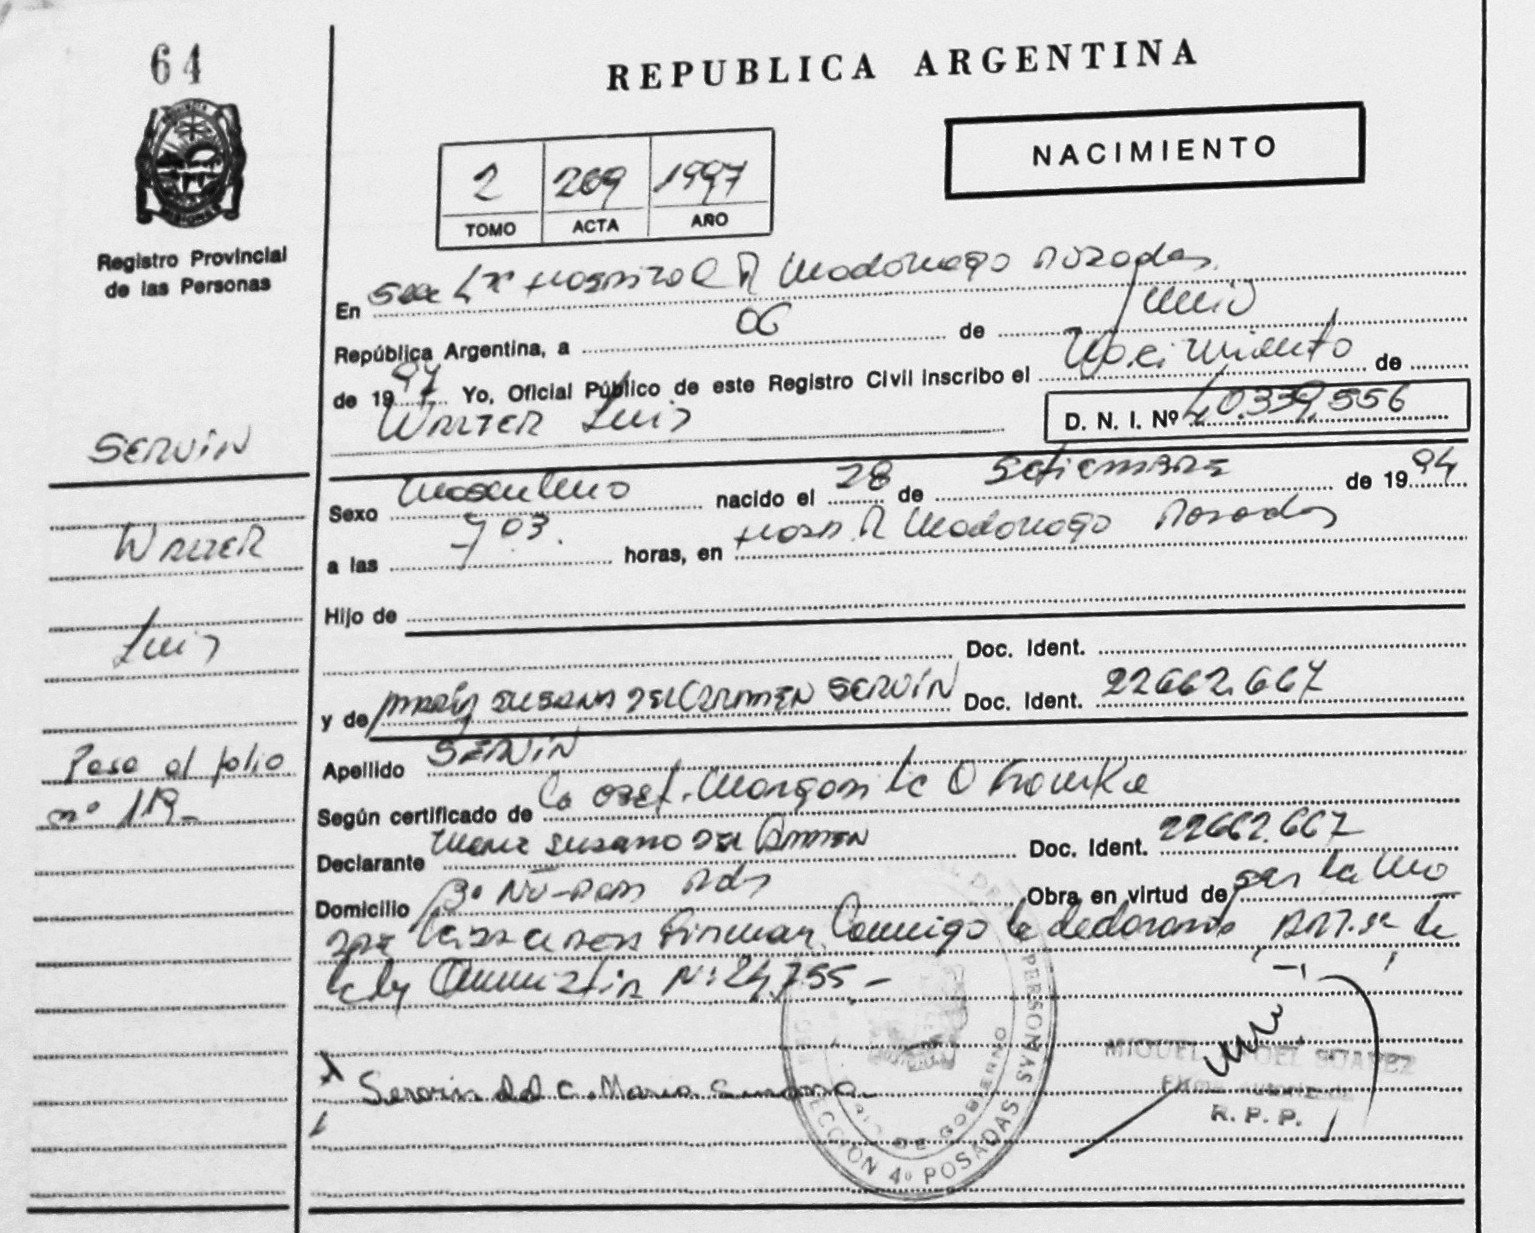 64
REPUBLICA ARGENTINA
NACIMIENTO
2 269 1997
TOMO ACTA AÑO
Registro Provincial
de las Personas
En Secc 4ta Hospital R Madariaga Posadas
República Argentina, a 06 de Junio
de 1997 Yo, Oficial Público de este Registro Civil inscribo el Nacimiento de
WALTER Luis D. N. I. Nº 40.339.556
SERVIN
WALTER
Luis
Pasa al folio
nº 119-
Sexo Masculino nacido el 28 de Setiembre de 1994
a las 7 03. horas, en Hosp. R Madariaga Posadas
Hijo de
Doc. Ident.
y de MARIA SUSANA DEL CARMEN SERVIN Doc. Ident. 22662.667
Apellido SERVIN
Según certificado de la obst. Margarita
Declarante Maria Susana DEL CARMEN Doc. Ident. 22662.667
Domicilio Bº Obra en virtud de ser la
firman conmigo la declarante
la ley Amnistia Nº: 24.755.-
Servin del C. Maria Susana
MIGUEL ANGEL SUAREZ
R. P. P.
PERSONAS
DE GOBIERNO
SECCION 4º POSADAS